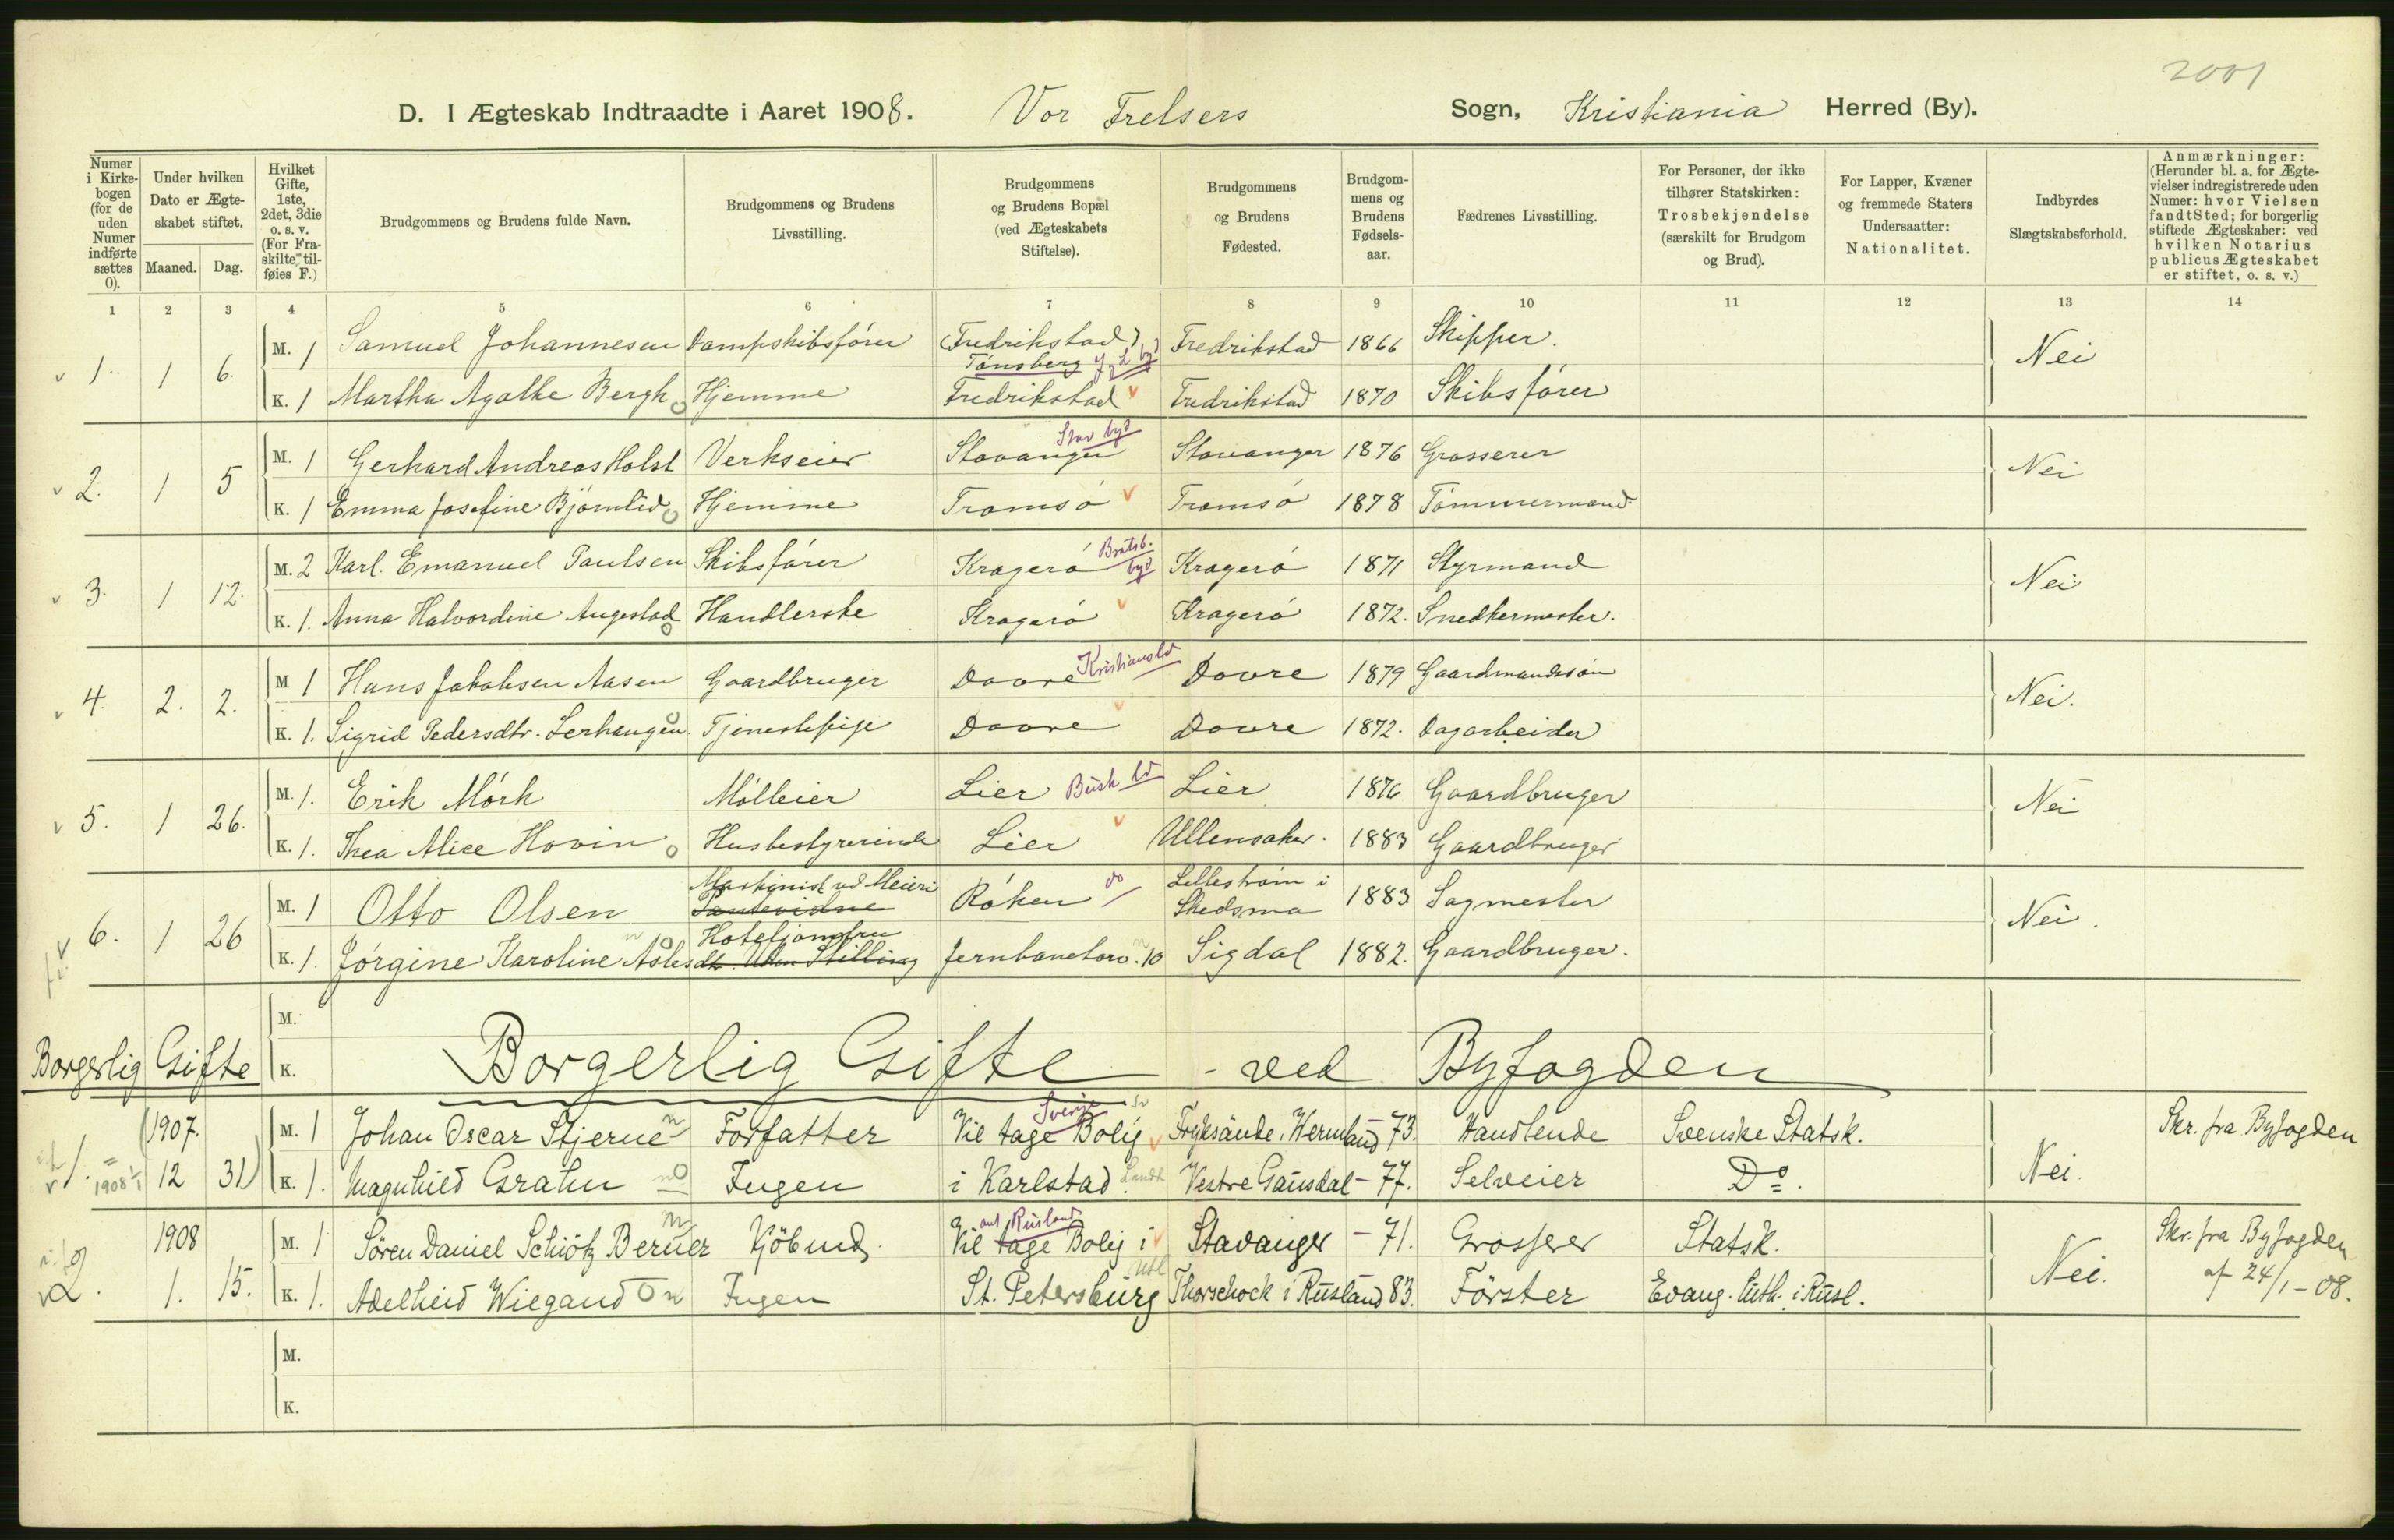 2001
D. I Ægteskab Indtraadte i Aaret 1908. Vor Frelsers Sogn, Kristiania Herred (By).
Numer i Kirkebogen (for de uden Numer indførte sættes 0).
Under hvilken Dato er Ægteskabet stiftet.
Maaned. Dag.
Hvilket Gifte, 1ste, 2det, 3die o. s. v. (For Fraskilte tilføies F.)
Brudgommens og Brudens fulde Navn.
Brudgommens og Brudens Livsstilling.
Brudgommens og Brudens Bopæl (ved Ægteskabets Stiftelse).
Brudgommens og Brudens Fødested.
Brudgommens og Brudens Fødselsaar.
Fædrenes Livsstilling.
For Personer, der ikke tilhører Statskirken: Trosbekjendelse (særskilt for Brudgom og Brud).
For Lapper, Kvæner og fremmede Staters Undersaatter: Nationalitet.
Indbyrdes Slægtskabsforhold.
Anmærkninger: (Herunder bl. a. for Ægtevielser indregistrerede uden Numer: hvor Vielsen fandt Sted; for borgerlig stiftede Ægteskaber: ved hvilken Notarius publicus Ægteskabet er stiftet, o. s. v.)
1 2 3 4 5 6 7 8 9 10 11 12 13 14
1. 1 6. M. 1 Samuel Johannesen Dampskibsfører (Fredrikstad) Tønsberg J. L. byd Fredrikstad 1866 Skipper. Nei
K. 1 Martha Agathe Bergh Hjemme Fredrikstad Fredrikstad 1870 Skibsfører
2. 1 5 M. 1 Gerhard Andreas Holst Verkseier Stavanger Stav byd Stavanger 1876 Grosserer Nei
K. 1 Emma Josefine Bjørnlid Hjemme Tromsø Tromsø 1878 Tømmermand
3. 1 12. M. 2 Karl. Emanuel Paulsen Skibsfører Kragerø Bratsb. byd Kragerø 1871 Styrmand Nei
K. 1. Anna Halvordine Augestad Handlerske Kragerø Kragerø 1872. Snedkermester.
4. 2. 2. M 1 Hans Jakobsen Aasen Gaardbruger Dovre Kristians ld Dovre 1879 Gaardmandssøn Nei.
K. 1. Sigrid Pedersdtr. Lerhaugen Tjenestepige Dovre Dovre 1872. Dagarbeider
5. 1 26. M. 1. Erik Mørk Mølleier Lier Busk ld Lier 1876 Gaardbruger Nei
K. 1. Thea Alice Hovin Husbestyrerinde Lier Ullensaker. 1883 Gaardbruger
6. 1 26 M. 1 Otto Olsen Maskinist ved Meieri Røken do Lillestrøm i Skedsmo 1883 Sagmester Nei.
K. 1. Jørgine Karoline Aslesdt. Hoteljomfru Uden Stilling Jernbanetorv. 10 Sigdal 1882. Gaardbruger.
M.
Borgerlig Gifte K. Borgerlig Gifte - ved Byfogden
(1907. M. 1 Johan Oscar Stjerne Forfatter Vil tage Bolig Sverige Fryksände, Wermland 73. Handlende Svenske Statsk. Skr. fra Byfogden
1. 1908 12 31) K. 1. Magnhild Grahn Ingen i Karlstad. Vestre Gausdal - 77. Selveier Do. Nei.
1908 M. 1 Søren Daniel Schiötz Berner Kjöbmd. Vil tage Bolig i Rusland Stavanger - 71. Grosserer Statsk. Skr. fra Byfogden
2. 1. 15. K. 1. Adelheid Wiegand Ingen St. Petersburg Thorschock i Rusland 83. Förster Evang. luth. i Rusl. Nei. af 24/1 - 08.
M.
K.